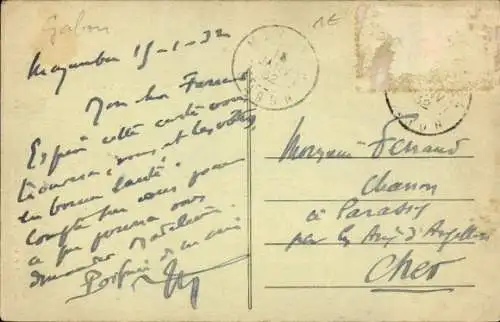 Gabon
Mayumba 15-1-32
Mon cher Fernand
Espère cette carte vous
trouvera, vous et les vôtres,
en bonne santé.
Compte sur vous pour
ce que pourra vous
demander Madeleine.
Monsieur Fernand
Charon
à Parassy
par les Aix d'Angillon
Cher